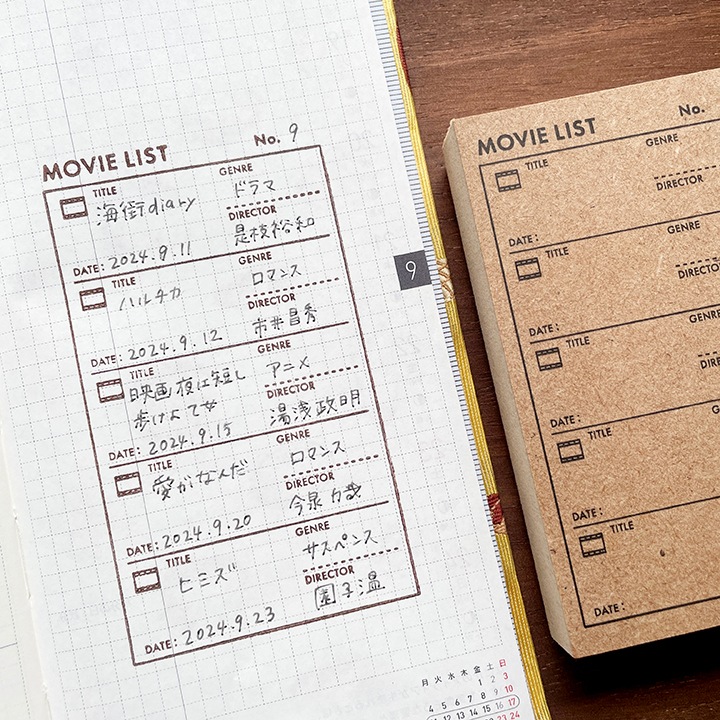 MOVIE LIST No. 9
TITLE
海街diary
GENRE
ドラマ
DIRECTOR
是枝裕和
DATE: 2024.9.11
TITLE
ハルチカ
GENRE
ロマンス
DIRECTOR
市井昌秀
DATE: 2024.9.12
TITLE
映画 夜は短し
歩けよ乙女
GENRE
アニメ
DIRECTOR
湯浅政明
DATE: 2024.9.15
TITLE
愛がなんだ
GENRE
ロマンス
DIRECTOR
今泉力哉
DATE: 2024.9.20
TITLE
ヒミズ
GENRE
サスペンス
DIRECTOR
園子温
DATE: 2024.9.23
9
月 火 水 木 金 土 日
1 2 3
4 5 6 7 8 9 10
11 12 13 14 15 16 17
23 24
MOVIE LIST No.
TITLE
GENRE
DIRECTOR
DATE:
TITLE
GENRE
DIRECTO
DATE:
TITLE
GENRE
DATE:
TITLE
DATE:
TITLE
DATE: